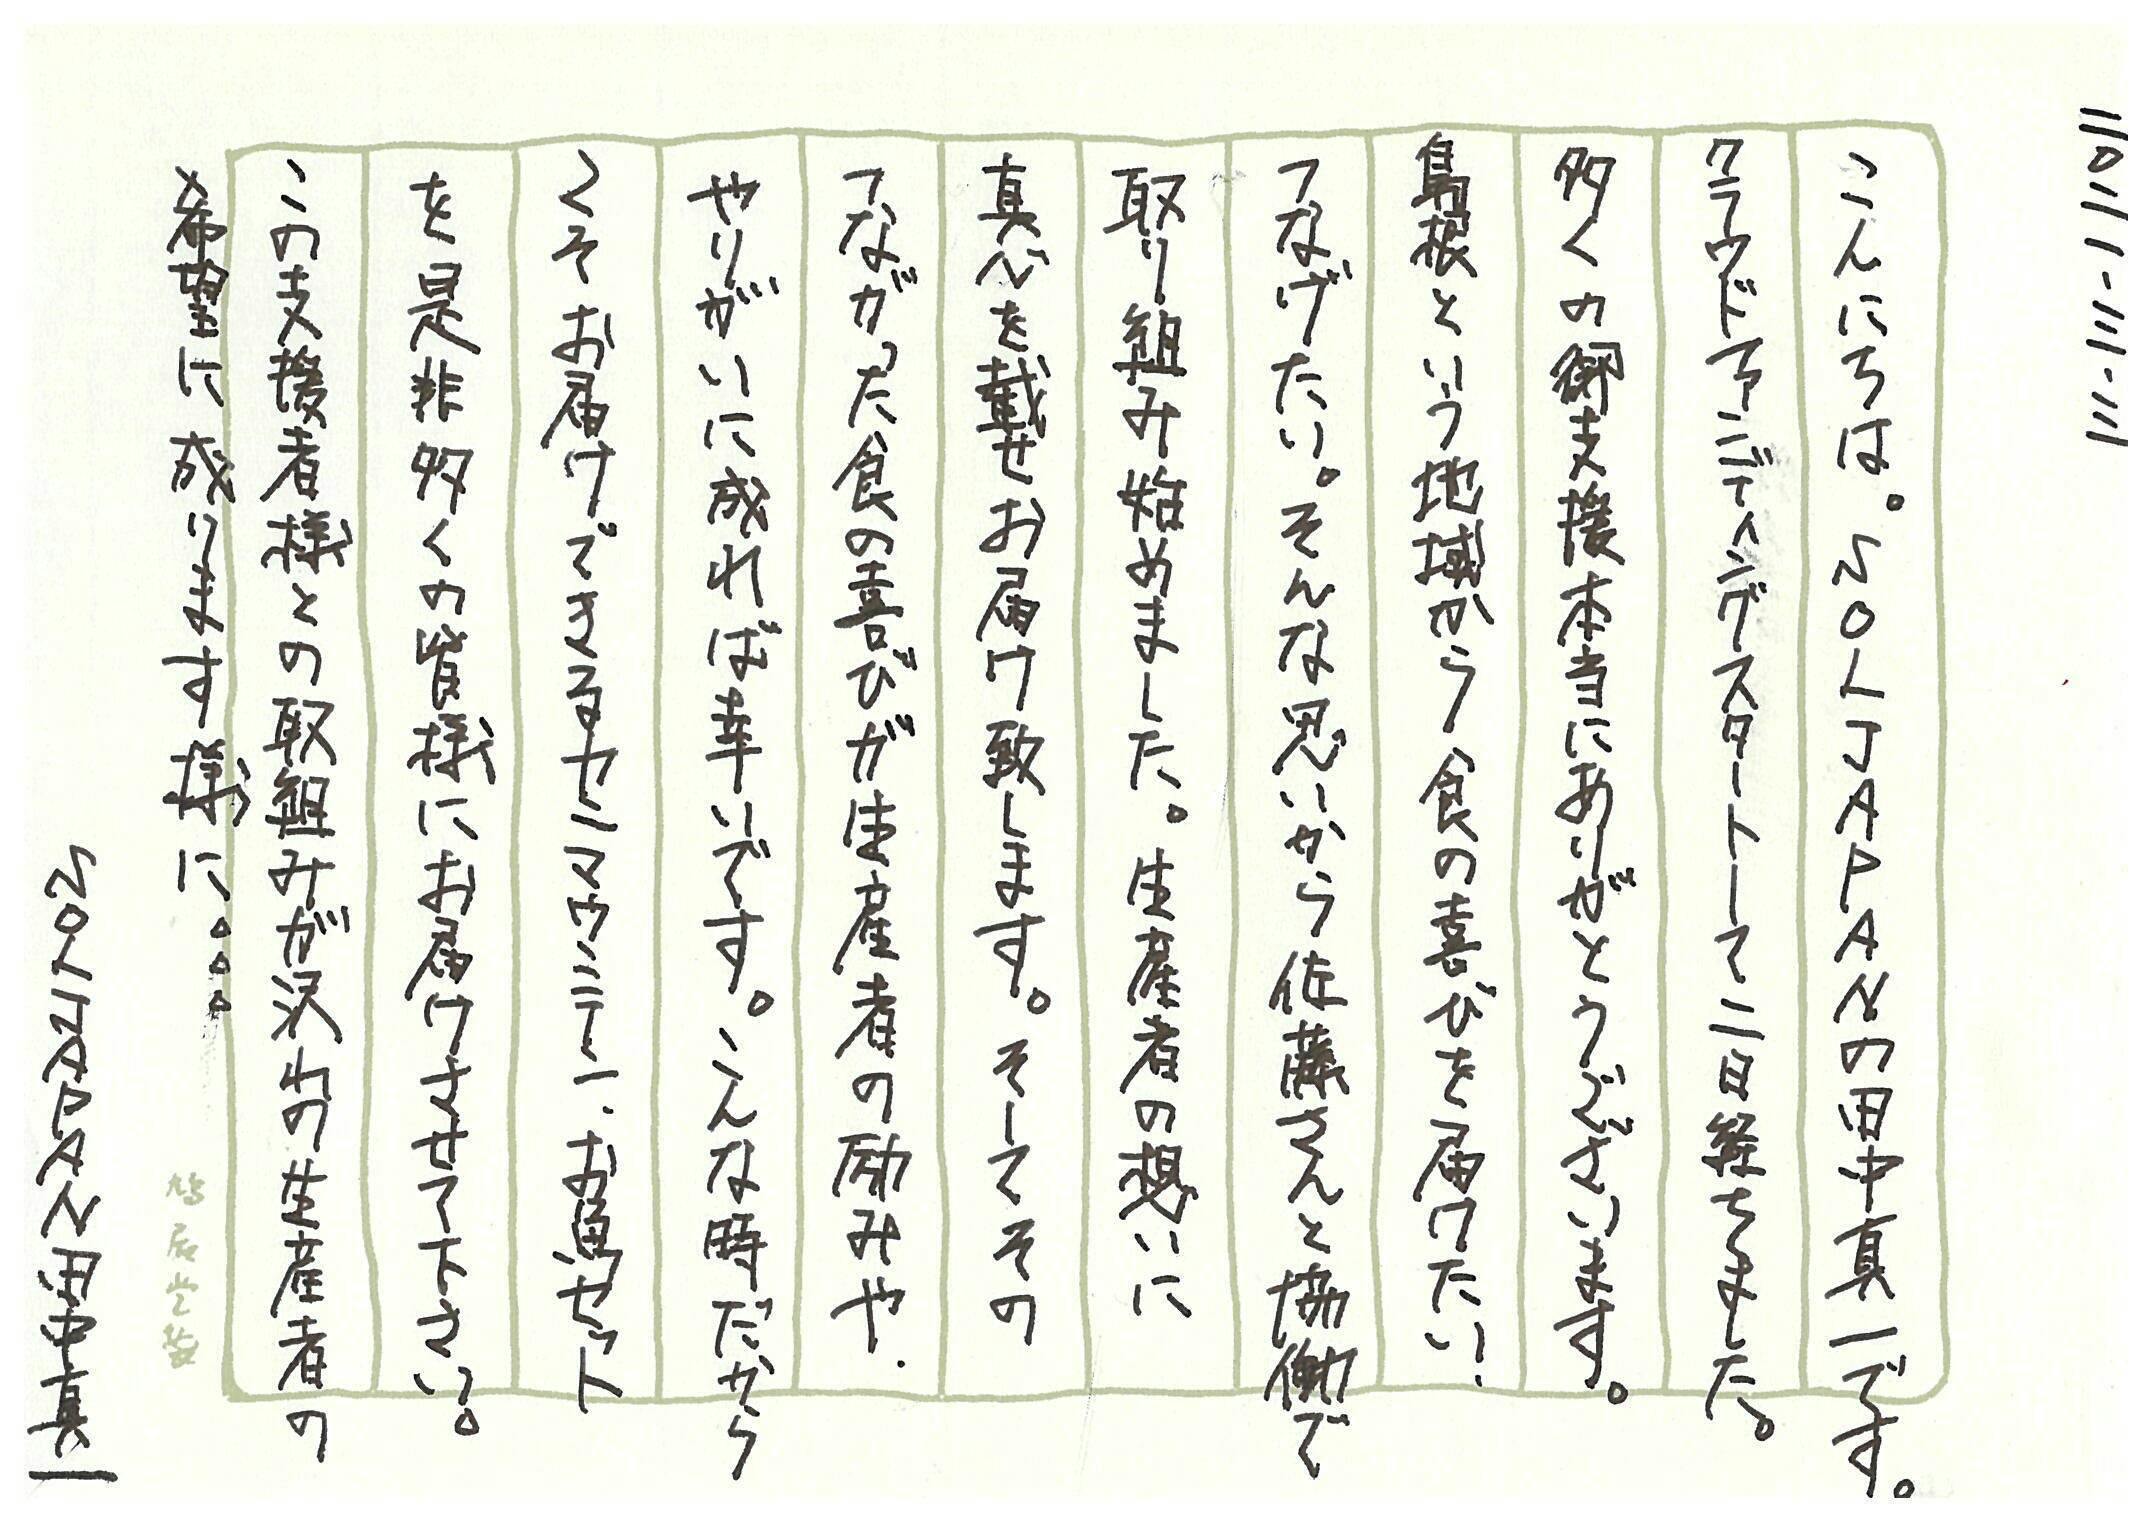 二〇二一・三・三
こんにちは。SOLJAPANの田中真一です。
クラウドファンディングスタートして二日経ちました。
多くの御支援本当にありがとうございます。
島根という地域から食の喜びを届けたい、
つなげたい。そんな思いから佐藤さんと協働で
取り組み始めました。生産者の想いに
真心を載せお届け致します。そしてその
つながった食の喜びが生産者の励みや、
やりがいに成れば幸いです。こんな時だから
くそお届けできるセミマウンテー、お魚セット
を是非多くの皆様にお届けさせて下さい。
この支援者様との取組みが沢れの生産者の
希望に成ります様に。。。
SOLJAPAN田中真一
鳩居堂製